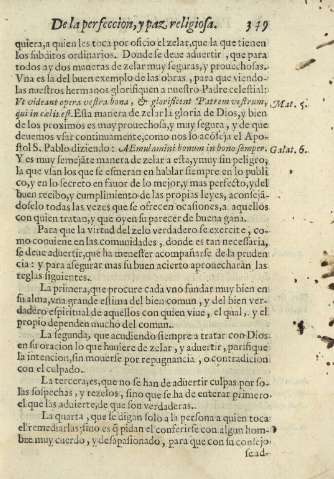 De la perfeccion, y paz religiosa. 349
quiera, a quien les toca por oficio el zelar, que la que tienen
los subditos ordinarios. Donde se deue aduertir, que para
todos ay dos maneras de zelar muy seguras, y prouechosas.
Vna es la del buen exemplo de las obras, para que viendo-
las nuestros hermanos glorifiquen a nuestro Padre celestial:
Vt videant opera vestra bona, & glorificent Patrem vestrum, Mat. 5.
qui in cælis est. Esta manera de zelar la gloria de Dios, y bien
de los proximos es muy prouechosa, y muy segura, y de que
deuemos vsar continuamente, como nos lo acōseja el Apo-
stol S. Pablo diziendo: Æmulamini bonum in bono semper. Galat. 6.
Y es muy semejāte manera de zelar a esta, y muy sin peligro,
la que vsan los que se esmeran en hablar siempre en lo publi
co, y en lo secreto en fauor de lo mejor, y mas perfecto, y del
buen recibo, y cumplimiento de las propias leyes, aconsejā-
doselo todas las vezes que se ofrecen ocasiones, a aquellos
con quien tratan, y que oyen su parecer de buena gana.
Para que la virtud del zelo verdadero se exercite, co-
mo conuiene en las comunidades, donde es tan necessaria,
se deue aduertir, que ha menester acompañarse de la pruden
cia: y para asegurar mas su buen acierto aprouecharán las
reglas siguientes.
La primera, que procure cada vno fundar muy bien en
su alma, vna grande estima del bien comun, y del bien ver-
dadero espiritual de aquellos con quien viue, el qual, y el
propio dependen mucho del comun.
La segunda, que acudiendo siempre a tratar con Dios
en su oracion lo que huuiere de zelar, y aduertir, purifique
la intencion, sin mouerse por repugnancia, o contradicion
con el culpado.
La tercera, es, que no se han de aduertir culpas por so-
las sospechas, y rezelos, sino que se ha de enterar primero
el que las aduierte, de que son verdaderas.
La quarta, que se digan solo a la persona a quien toca
el remediarlas; sino es q̃ pidan el conferirse con algun hom-
bre muy cuerdo, y desapasionado, para que con su consejo
se ad-